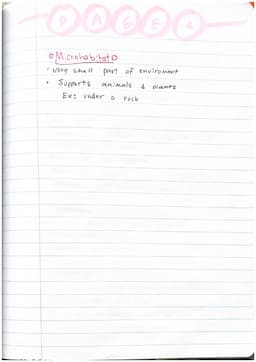 PAGE 4
Microhabitat
· very small part of enviroment
· Supports animals & plants
Ex: under a rock